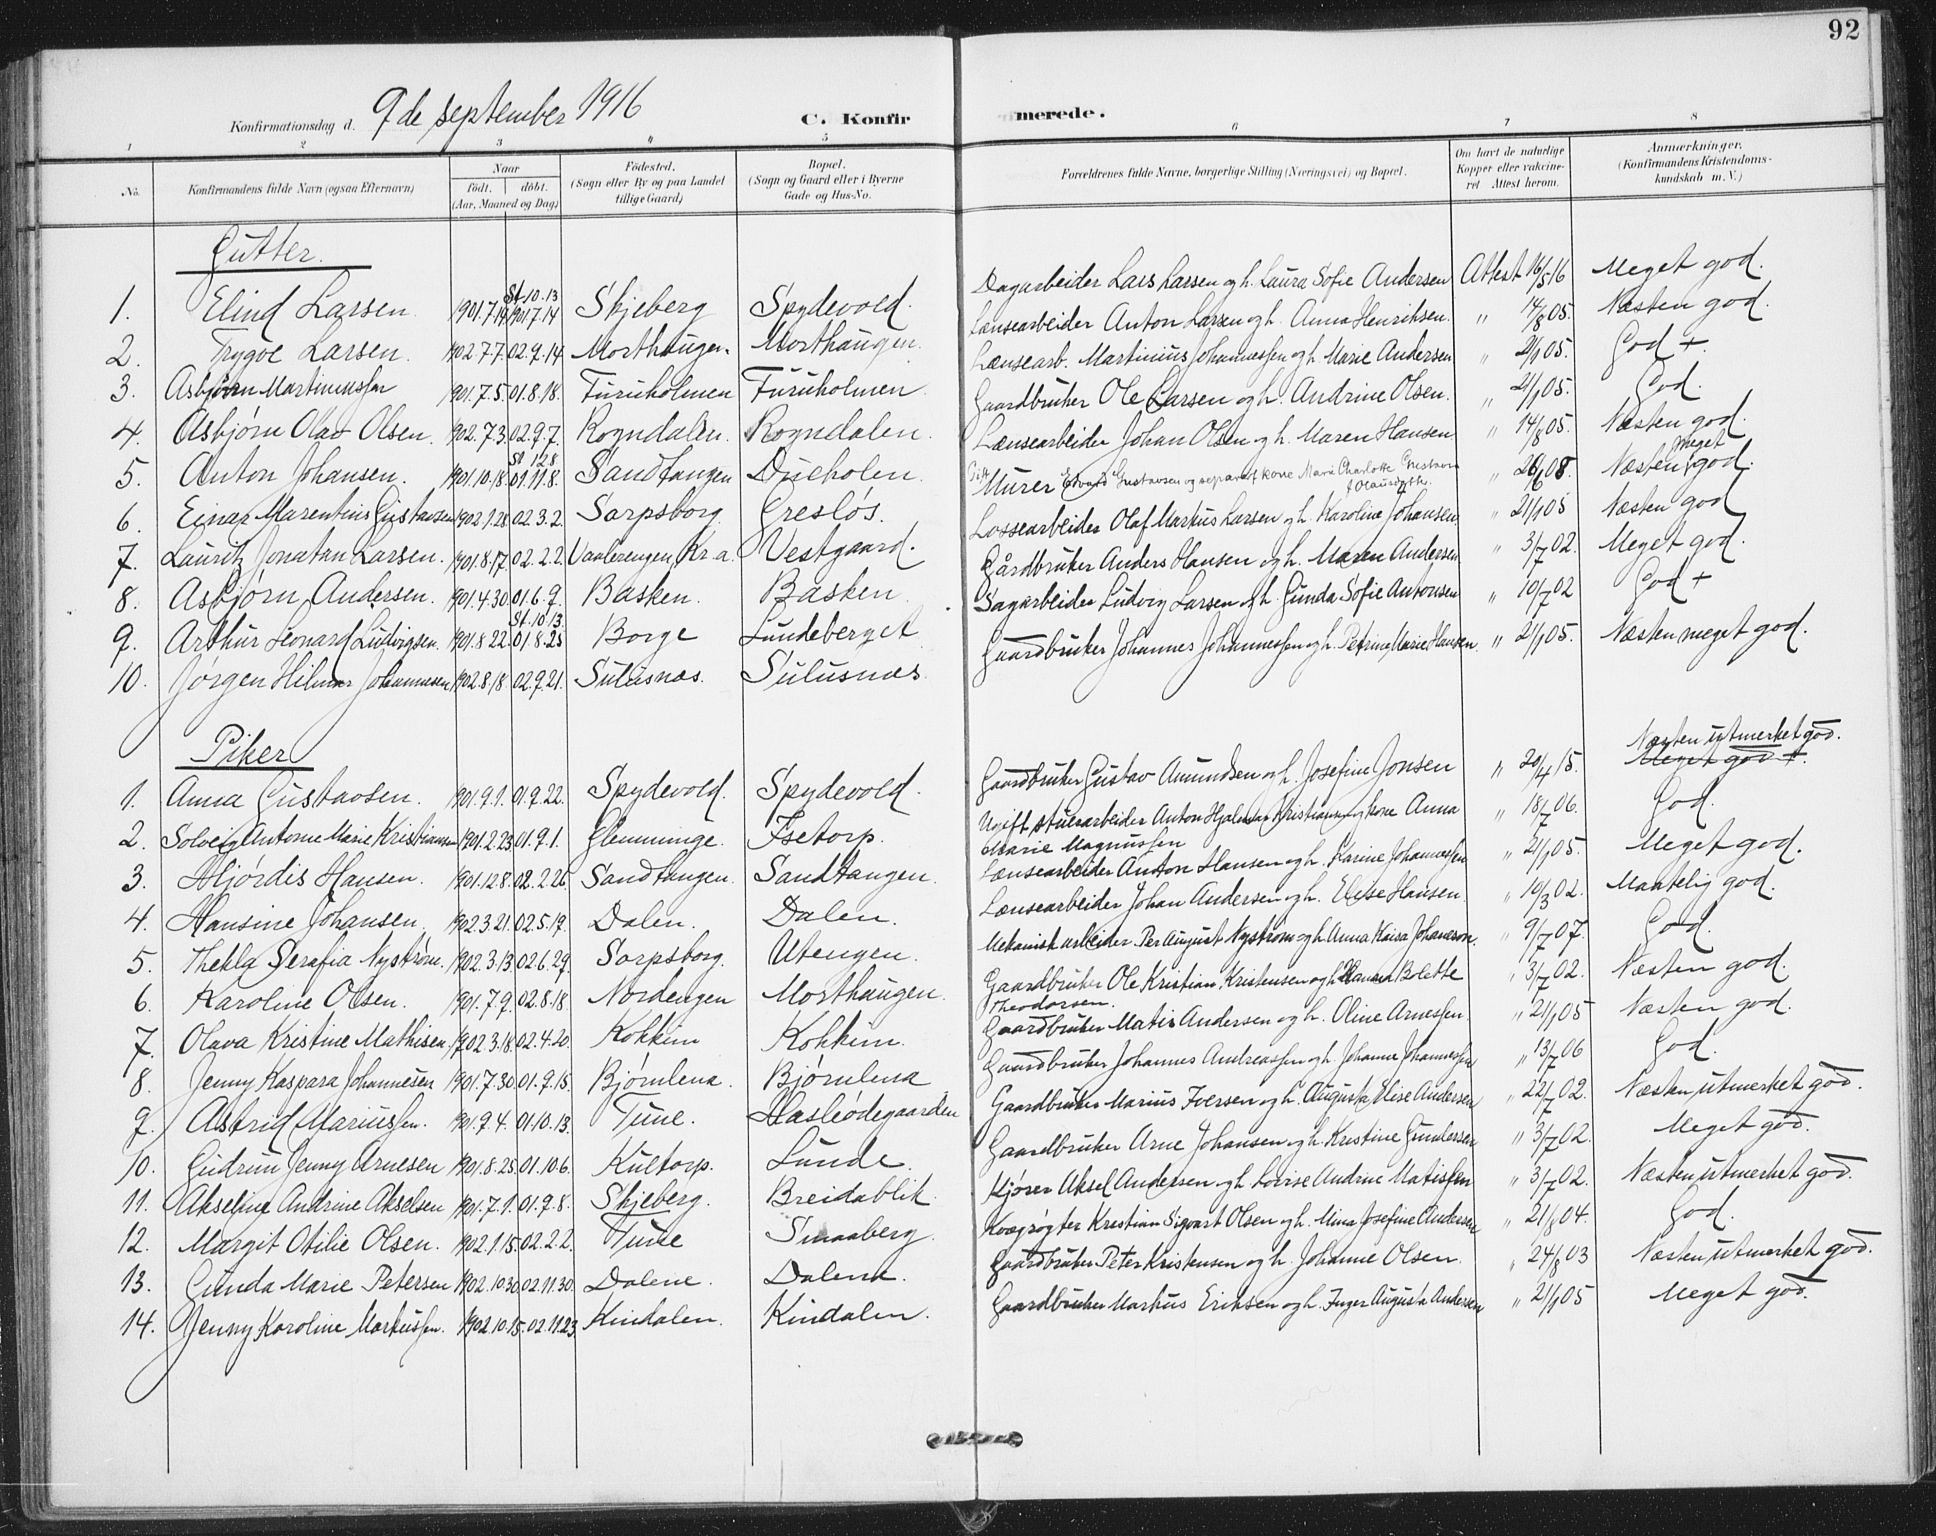 92
Konfirmationsdag d. 9de september 1916 C. Konfir merede.
1 2 3 4 5 6 7 8
No. Konfirmandens fulde Navn (ogsaa Efternavn) Naar födt. döbt. (Aar, Maaned og Dag) Födested. (Sogn eller By og paa Landet tillige Gaard) Bopæl. (Sogn og Gaard eller i Byerne Gade og Hus-No. Forældrenes fulde Navne, borgerlige Stilling (Næringsvei) og Bopæl. Om havt de naturlige Kopper eller vakcineret Attest herom. Anmærkninger, (Konfirmandens Kristendomskundskab m. V.)
Gutter.
1. Elind Larsen 1901.7.14 St. 10.13 1901.7.14 Skjeberg Spydevold. Dagarbeider Lars Larsen og h. Laura Sofie Andersen Attest 16/5 16 Meget god.
2. Trygve Larsen. 1902.7.7. 02.9.14 Morthaugen. Morthaugen. Lænsearbeider Anton Larsen og h. Anna Henriksen. " 14/8 05. Næsten god.
3. Asbjørn Martiniussen 1901.7.5. 01.8.18. Furuholmen Furuholmen. Lænsearb. Martinius Johannessen og h. Marie Andersen " 21/1 05. God +.
4. Asbjørn Olav Olsen. 1902.7.3. 02.9.7. Rogndalen. Rogndalen. Gaardbruker Ole Larsen og h. Andrine Olsen. " 21/1 05. God.
5. Anton Johansen. 1901.10.18. St. 12.8 01.11.8. Sandtangen Dueholen. Lænsearbeider Johan Olsen og h. Maren Hansen " 14/8 05. Næsten god.
6. Einar Marentius Gustavsen 1902.1.28 02.3.2. Sarpsborg Gresløs. Murer Edvard Gustavsen og separert kone Marie Charlotte Gustavsen f. Olausdatter. " 26/6 08. Næsten meget god.
7. Lauritz Jonatan Larsen. 1901.8.17. 02.2.2. Vaalerengen, Kr.a. Vestgaard. Lossearbeider Olaf Markus Larsen og h. Karoline Johansen " 21/1 05 Næsten god
8. Asbjørn Andersen. 1901.4.30. 01.6.9. Basken. Basken. Gårdbruker Anders Hansen og h. Maren Andersen " 3/7 02. Meget god.
9. Arthur Leonard Ludvigsen. 1901.8.22. St. 10.13. 01.8.25 Borge Lundeberget Sagarbeider Ludvig Larsen og h. Gunda Sofie Antonsen " 10/7 02 God +
10. Jørgen Hilmar Johannesen 1902.8.18. 02.9.21. Sulusnæs. Sulusnæs. Gaardbruker Johannes Johannessen og h. Petrine Marie Hansen " 21/1 05. Næsten meget god.
Piker
1. Anna Gustavsen. 1901.9.1. 01.9.22. Spydevold. Spydevold. Gaardbruker Gustav Amundsen og h. Josefine Jonsen " 20/4 15. Næsten utmerket god. Meget god +.
2. Solveig Antonie Marie Kristiansen 1901.2.23 01.9.1. Glemminge. Isetorp. Ugift stuerarbeider Anton Hjalmar Kristiansen og kone Anna Marie Magnussen " 18/7 06. God.
3. Hjørdis Hansen. 1901.12.8. 02.2.26. Sandtangen. Sandtangen. Lænsearbeider Anton Hansen og h. Karine Johannessen " 21/1 05. Meget god.
4. Hansine Johansen. 1902.3.21. 02.5.19. Dalen. Dalen. Lænsearbeider Johan Andersen og h. Elise Hansen. " 19/3 02. Maatelig god.
5. Thekla Serafia Nystrøm. 1902.3.13. 02.6.29. Sarpsborg. Utengen. Mekanisk arbeider Per August Nystrøm og h. Anna Kaisa Johanson. " 9/7 07. God.
6. Karoline Olsen. 1901.7.9. 02.8.18. Nordengen Morthaugen. Gaardbruker Ole Kristian Kristensen og h. Hanna Bolette Theodorsen. " 3/7 02. Næsten god.
7. Olava Kristine Mathisen. 1902.3.18. 02.4.20. Kokkim Kokkim. Gaardbruker Matis Andersen og h. Oline Arnessen. " 21/1 05 Næsten god.
8. Jenny Kaspara Johannesen 1901.7.30. 01.9.15. Bjørnlena. Bjørnlena Gaardbruker Johannes Andreassen og h. Johanne Johannessen " 13/7 06 God.
9. Astrid Mariussen. 1901.9.4. 01.10.13. Tune. Hasleødegaarden Gaardbruker Marius Iversen og h. Augusta Elise Andersen " 22/7 02. Næsten utmerket god.
10. Gudrun Jenny Arnesen 1901.8.25. 01.10.6. Kultorp. Lunde. Gaardbruker Arne Johansen og h. Kristine Gundersen " 3/7 02. Meget god.
11. Akseline Andrine Akselsen 1901.7.1. 01.9.8. Skjeberg. Breidablik. Kjører Aksel Andersen og h. Lovise Andrine Matissen " 3/7 02. Næsten utmerket god.
12. Margit Otilie Olsen. 1902.1.15. 02.2.2. Tune Smaaberg. Kvægrøgter Kristian Sigvart Olsen og h. Mina Josefine Andersen " 21/8 04. God.
13. Gunda Marie Petersen 1902.10.30. 02.11.30. Dalene. Dalene. Gaardbruker Peter Kristensen og h. Johanne Olsen. " 24/8 03 Næsten utmerket god.
14. Jenny Karoline Markussen. 1902.10.15. 02.11.23. Kindalen. Kindalen. Gaardbruker Markus Eriksen og h. Inger Augusta Andersen " 21/1 05 Meget god.